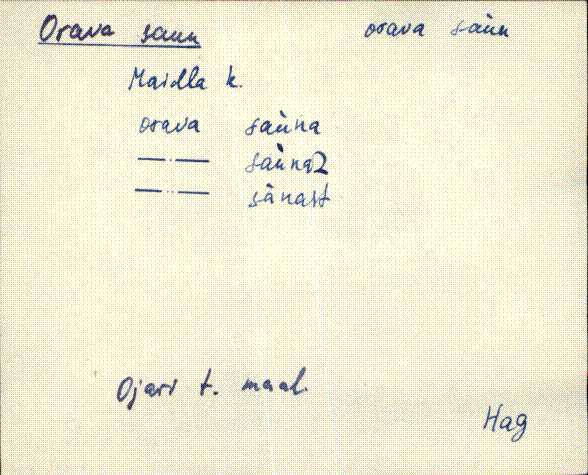 Orava saun orava sàun
Maidla k.
orava sàuna
—··— sàuna2
—··— sànast
Ojari t. maal.
Hag